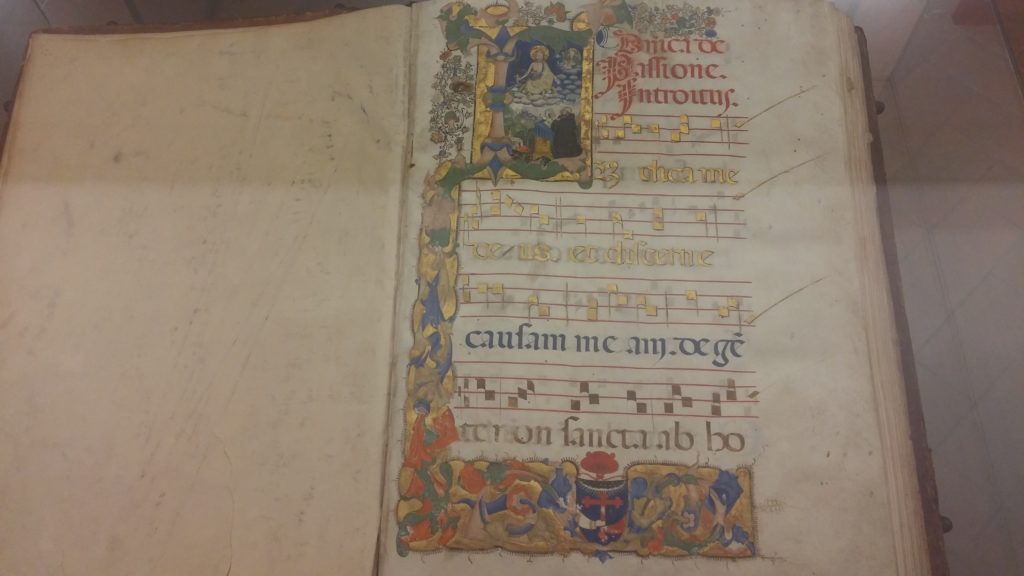 Dnica de
Passione.
Introitus.
I udica me
de us. et discerne
causam me am. de gē
te non sancta ab ho